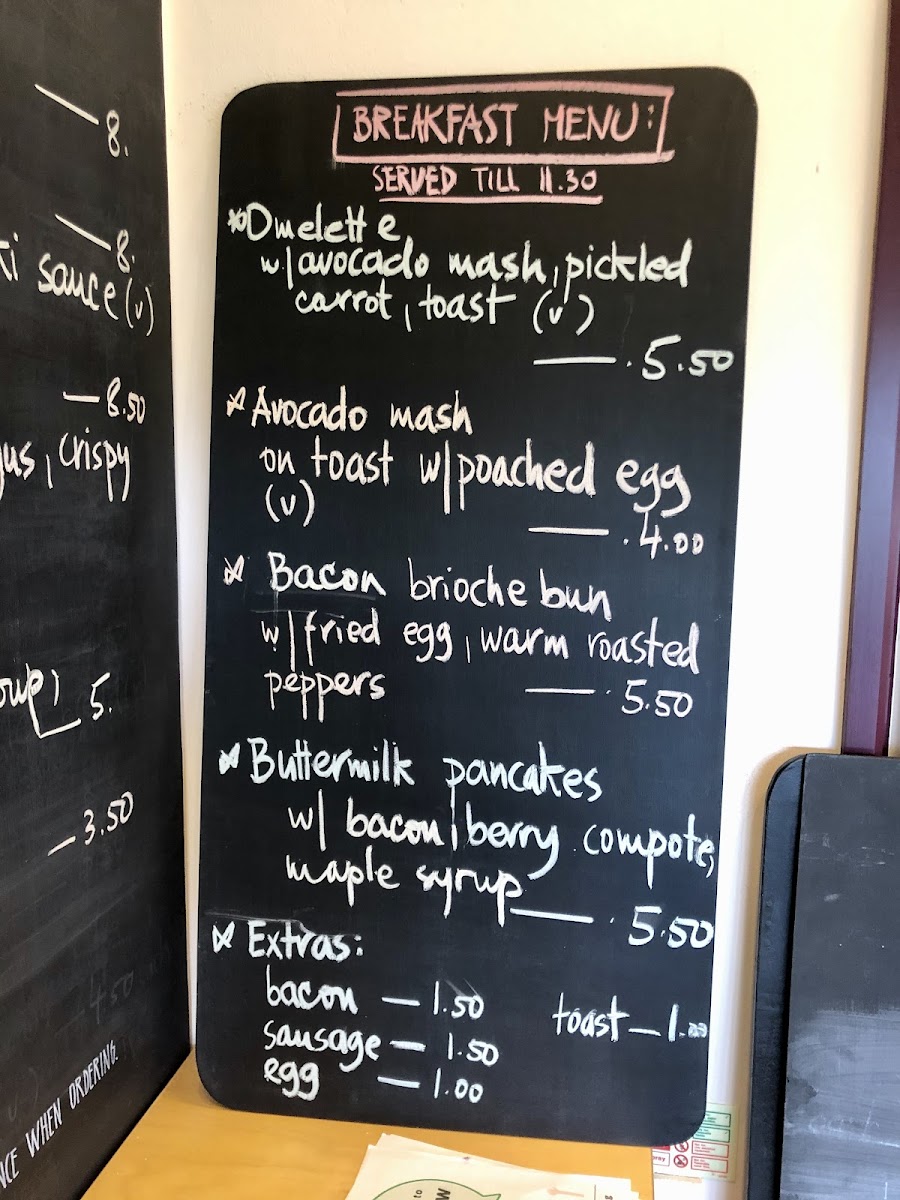 8.
8.
sauce (v)
8.50
crispy
5.
3.50
4.50
WHEN ORDERING.
BREAKFAST MENU:
SERVED TILL 11.30
Omelette
w/avocado mash, pickled
carrot, toast (v)
5.50
Avocado mash
on toast w/poached egg
(v)
4.00
Bacon brioche bun
w/fried egg, warm roasted
peppers 5.50
Buttermilk pancakes
w/ bacon, berry compote,
maple syrup
5.50
Extras:
bacon — 1.50
toast — 1.00
sausage — 1.50
egg — 1.00